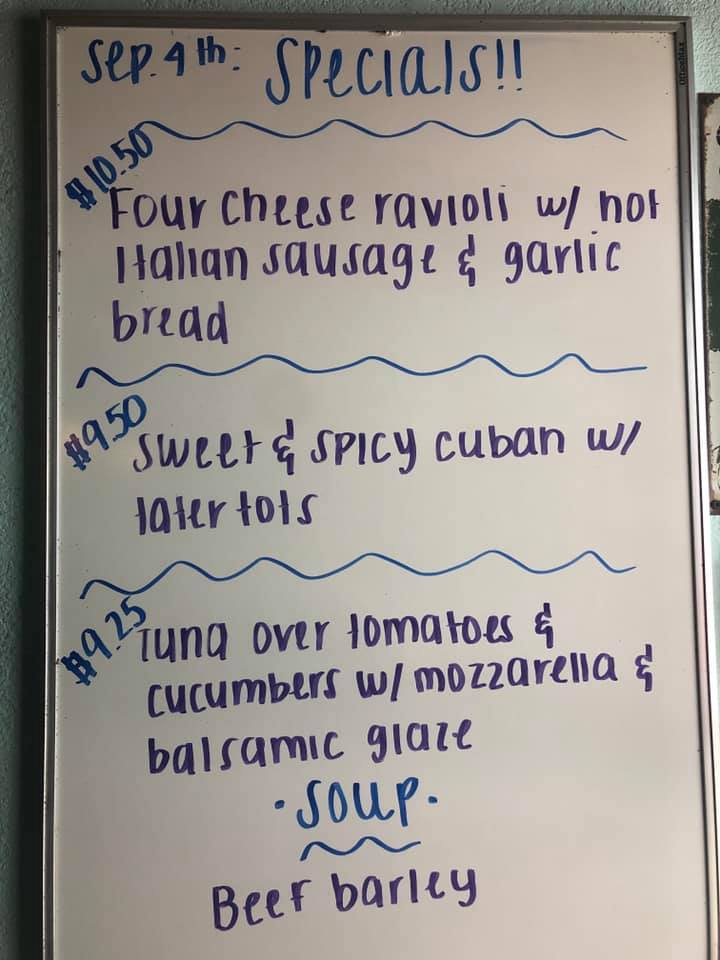 Sep. 4th: Specials!!
$10.50
Four cheese ravioli w/ hot
Italian sausage & garlic
bread
$9.50
sweet & spicy cuban w/
tater tots
$9.25
Tuna over tomatoes &
cucumbers w/ mozzarella &
balsamic glaze
·Soup·
Beef barley
OfficeMax